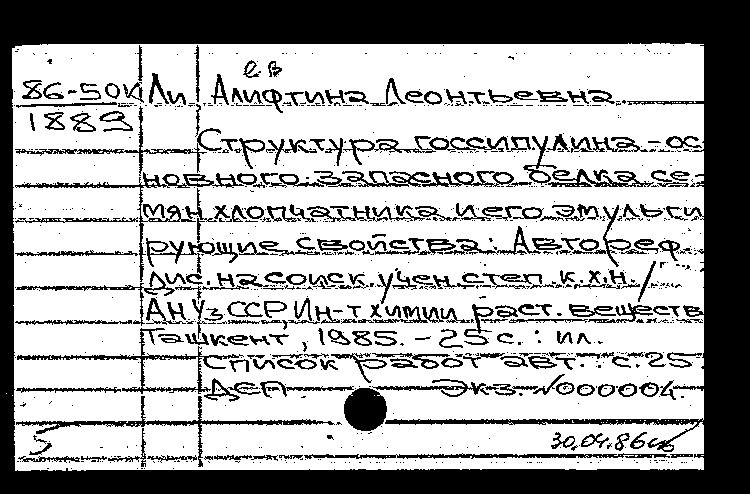 ев
86-50к Ли Алифтина Леонтьевна.
1889
Структура госсипулина - ос-
новного запасного белка се-
мян хлопчатника и его эмульги
рующие свойства: Автореф.
дис. на соиск. учен. степ. к.х.н. /
АН УзССР, Ин-т химии раст. веществ
Ташкент, 1985. - 25 с. : ил.
Список работ авт.: с. 25.
ДСП. Экз. №000004.
5 30.04.86